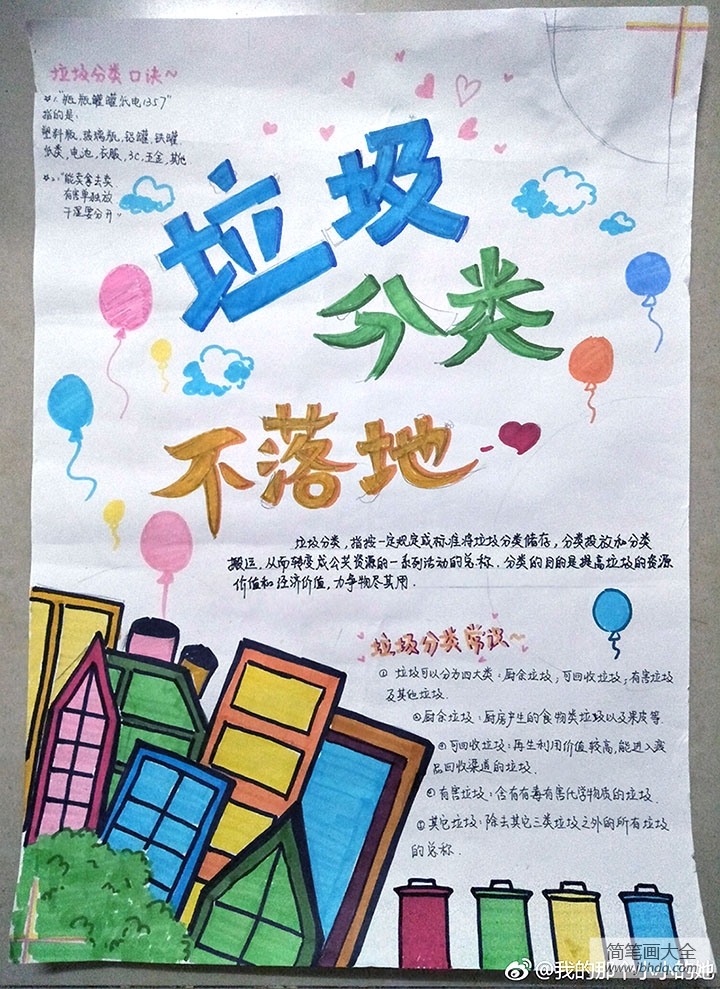 垃圾分类口诀~
☆1."瓶瓶罐罐纸电1357"
指的是:
塑料瓶,玻璃瓶,铝罐,铁罐
纸类,电池,衣服,3C,五金,其他
☆2."能卖拿去卖
有害单独放
干湿要分开"
垃圾
分类
不落地
垃圾分类,指按一定规定或标准将垃圾分类储存,分类投放和分类
搬运,从而转变成公共资源的一系列活动的总称.分类的目的是提高垃圾的资源
价值和经济价值,力争物尽其用.
垃圾分类常识~
① 垃圾可以分为四大类:厨余垃圾,可回收垃圾,有害垃圾
及其他垃圾.
厨余垃圾:厨房产生的食物类垃圾以及果皮等.
可回收垃圾:再生利用价值较高,能进入废
品回收渠道的垃圾.
有害垃圾:含有有毒有害化学物质的垃圾.
其它垃圾:除去其它三类垃圾之外的所有垃圾
的总称.
简笔画大全
www.jbhdq.com
@我的那个小小的她